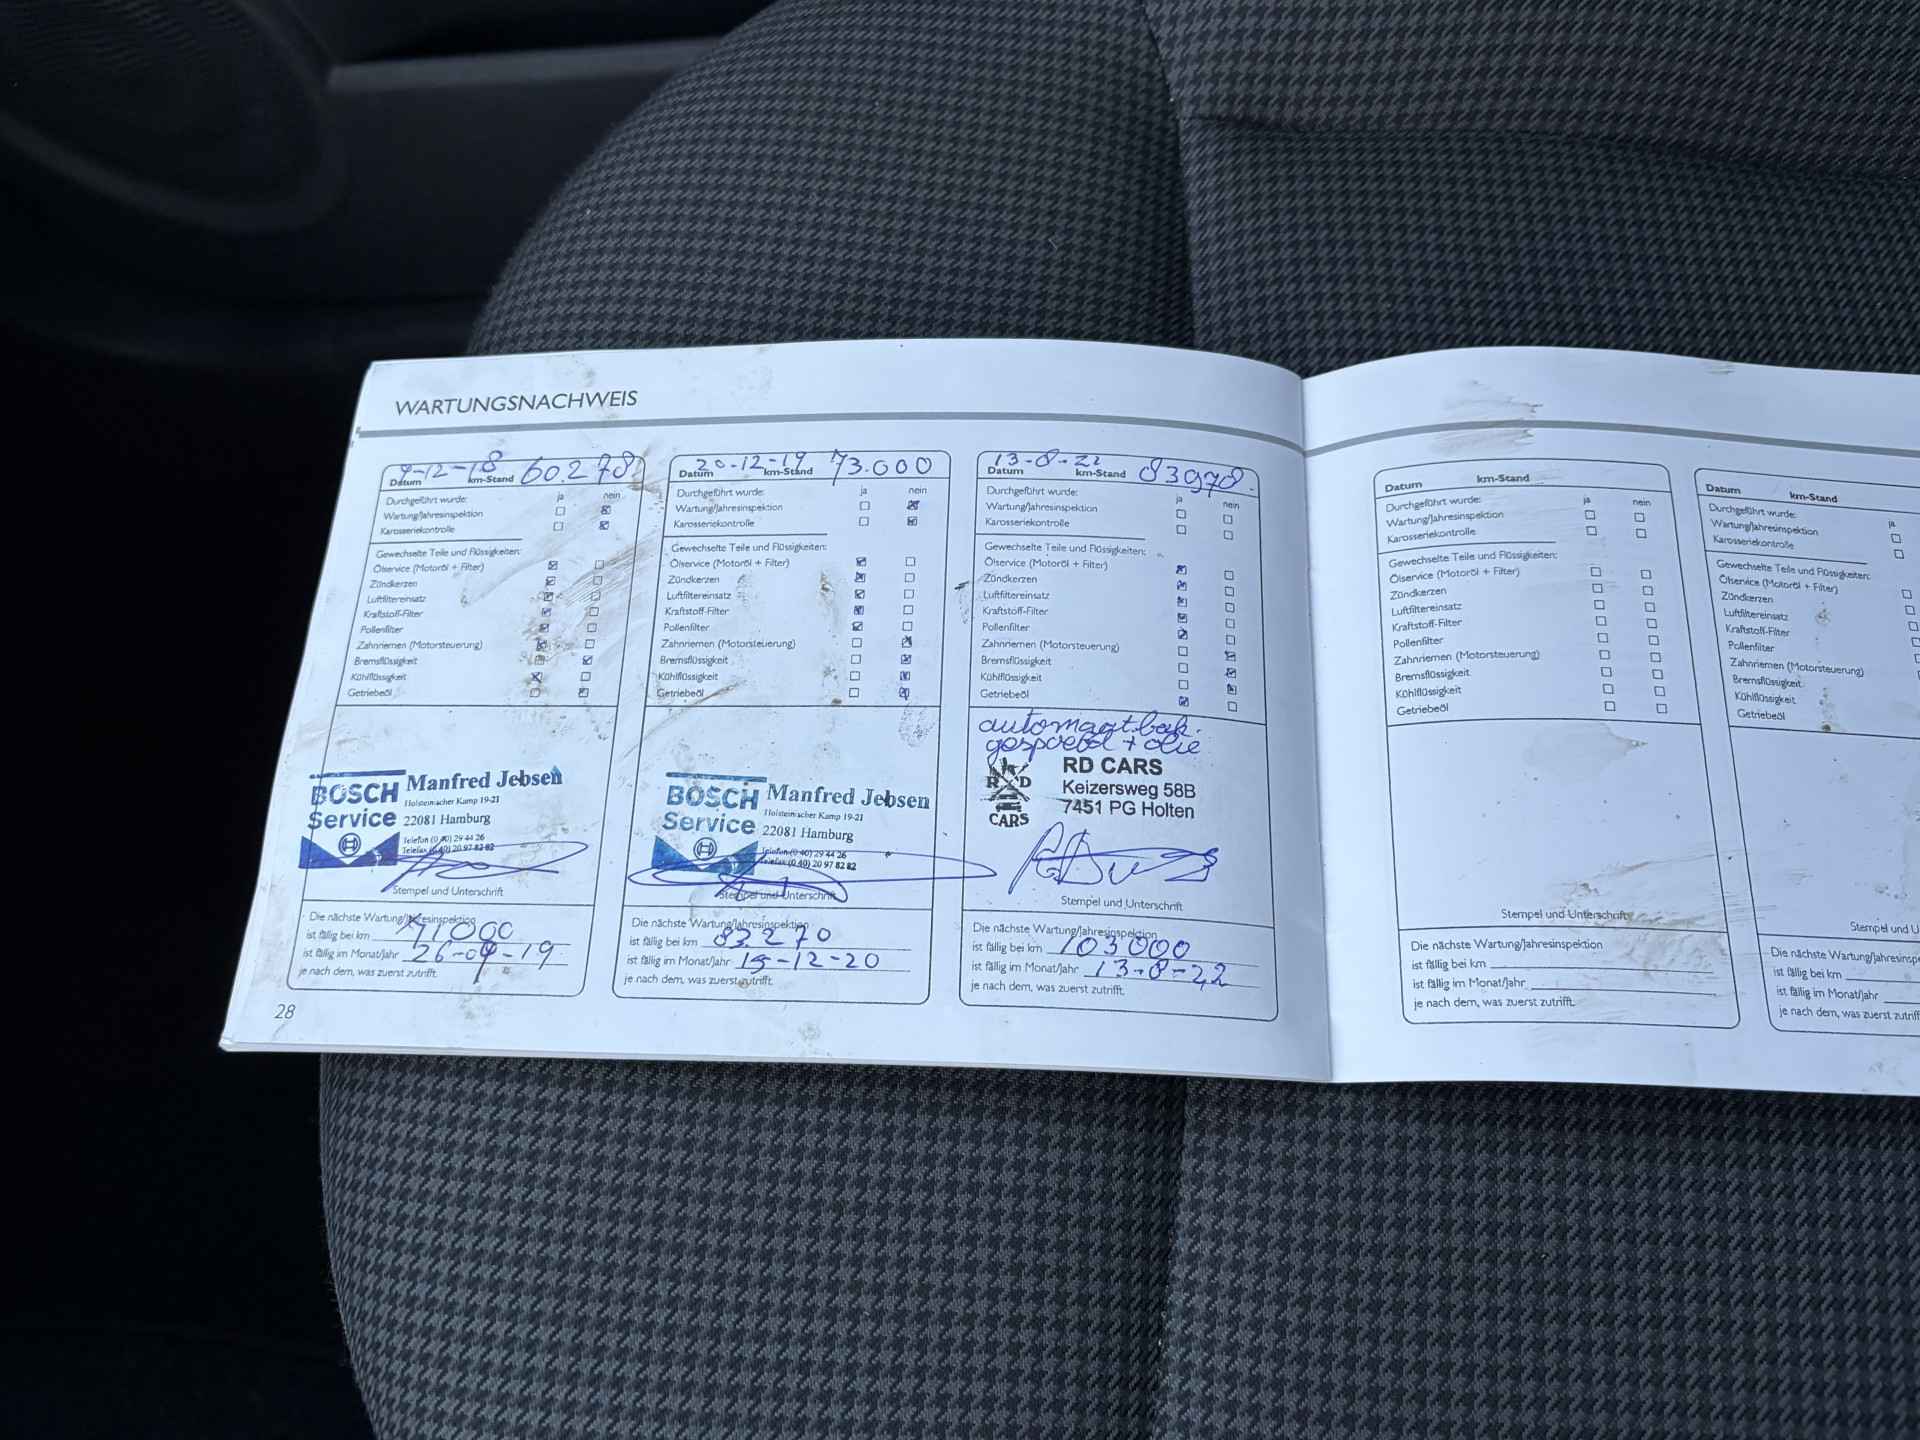 WARTUNGSNACHWEIS
9-12-18 60.278
Datum km-Stand
Durchgeführt wurde: ja nein
Wartung/Jahresinspektion
Karosseriekontrolle
Gewechselte Teile und Flüssigkeiten:
Ölservice (Motoröl + Filter)
Zündkerzen
Luftfiltereinsatz
Kraftstoff-Filter
Pollenfilter
Zahnriemen (Motorsteuerung)
Bremsflüssigkeit
Kühlflüssigkeit
Getriebeöl
BOSCH
Service
Manfred Jebsen
Holsteinischer Kamp 19-21
22081 Hamburg
Telefon (0 40) 29 44 26
Telefax (0 40) 20 97 82 82
Stempel und Unterschrift
Die nächste Wartung/Jahresinspektion
ist fällig bei km
ist fällig im Monat/Jahr 26-09-19
je nach dem, was zuerst zutrifft.
28
20-12-19 73.000
Datum km-Stand
Durchgeführt wurde: ja nein
Wartung/Jahresinspektion
Karosseriekontrolle
Gewechselte Teile und Flüssigkeiten:
Ölservice (Motoröl + Filter)
Zündkerzen
Luftfiltereinsatz
Kraftstoff-Filter
Pollenfilter
Zahnriemen (Motorsteuerung)
Bremsflüssigkeit
Kühlflüssigkeit
Getriebeöl
BOSCH
Service
Manfred Jebsen
Holsteinischer Kamp 19-21
22081 Hamburg
Telefon (0 40) 29 44 26
Telefax (0 40) 20 97 82 82
Stempel und Unterschrift
Die nächste Wartung/Jahresinspektion
ist fällig bei km 83.270
ist fällig im Monat/Jahr 15-12-20
je nach dem, was zuerst zutrifft.
13-8-21 83978.
Datum km-Stand
Durchgeführt wurde: ja nein
Wartung/Jahresinspektion
Karosseriekontrolle
Gewechselte Teile und Flüssigkeiten:
Ölservice (Motoröl + Filter)
Zündkerzen
Luftfiltereinsatz
Kraftstoff-Filter
Pollenfilter
Zahnriemen (Motorsteuerung)
Bremsflüssigkeit
Kühlflüssigkeit
Getriebeöl
automaat.bak.
gespoeld + olie
R D
CARS
RD CARS
Keizersweg 58B
7451 PG Holten
Stempel und Unterschrift
Die nächste Wartung/Jahresinspektion
ist fällig bei km 103000
ist fällig im Monat/Jahr 13-8-22
je nach dem, was zuerst zutrifft.
Datum km-Stand
Durchgeführt wurde: ja nein
Wartung/Jahresinspektion
Karosseriekontrolle
Gewechselte Teile und Flüssigkeiten:
Ölservice (Motoröl + Filter)
Zündkerzen
Luftfiltereinsatz
Kraftstoff-Filter
Pollenfilter
Zahnriemen (Motorsteuerung)
Bremsflüssigkeit
Kühlflüssigkeit
Getriebeöl
Stempel und Unterschrift
Die nächste Wartung/Jahresinspektion
ist fällig bei km
ist fällig im Monat/Jahr
je nach dem, was zuerst zutrifft.
Datum km-Stand
Durchgeführt wurde: ja
Wartung/Jahresinspektion
Karosseriekontrolle
Gewechselte Teile und Flüssigkeiten:
Ölservice (Motoröl + Filter)
Zündkerzen
Luftfiltereinsatz
Kraftstoff-Filter
Pollenfilter
Zahnriemen (Motorsteuerung)
Bremsflüssigkeit
Kühlflüssigkeit
Getriebeöl
Stempel und U
Die nächste Wartung/Jahresinspe
ist fällig bei km
ist fällig im Monat/Jahr
je nach dem, was zuerst zutriff